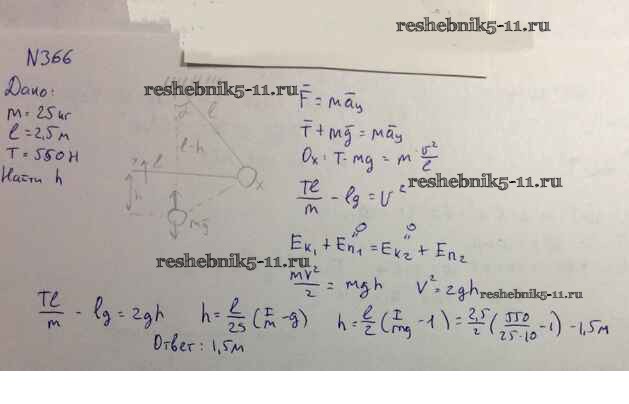 reshebnik5-11.ru
N366
Дано:
m = 25 кг
l = 2,5 м
T = 550 Н
Найти h
reshebnik5-11.ru
α
l
l-h
l
h
x
mḡ
F̄ = māц
T̄ + mḡ = māц
Ox: T - mg = m v²/l
Tl/m - lg = v²
reshebnik5-11.ru
Eк₁ + Eп₁ = Eк₂ + Eп₂
0 0
mv²/2 = mgh v² = 2gh
reshebnik5-11.ru
reshebnik5-11.ru
Tl/m - lg = 2gh h = l/2g (T/m - g) h = l/2 (T/mg - 1) = 2,5/2 (550/25·10 - 1) - 1,5 м
Ответ: 1,5 м